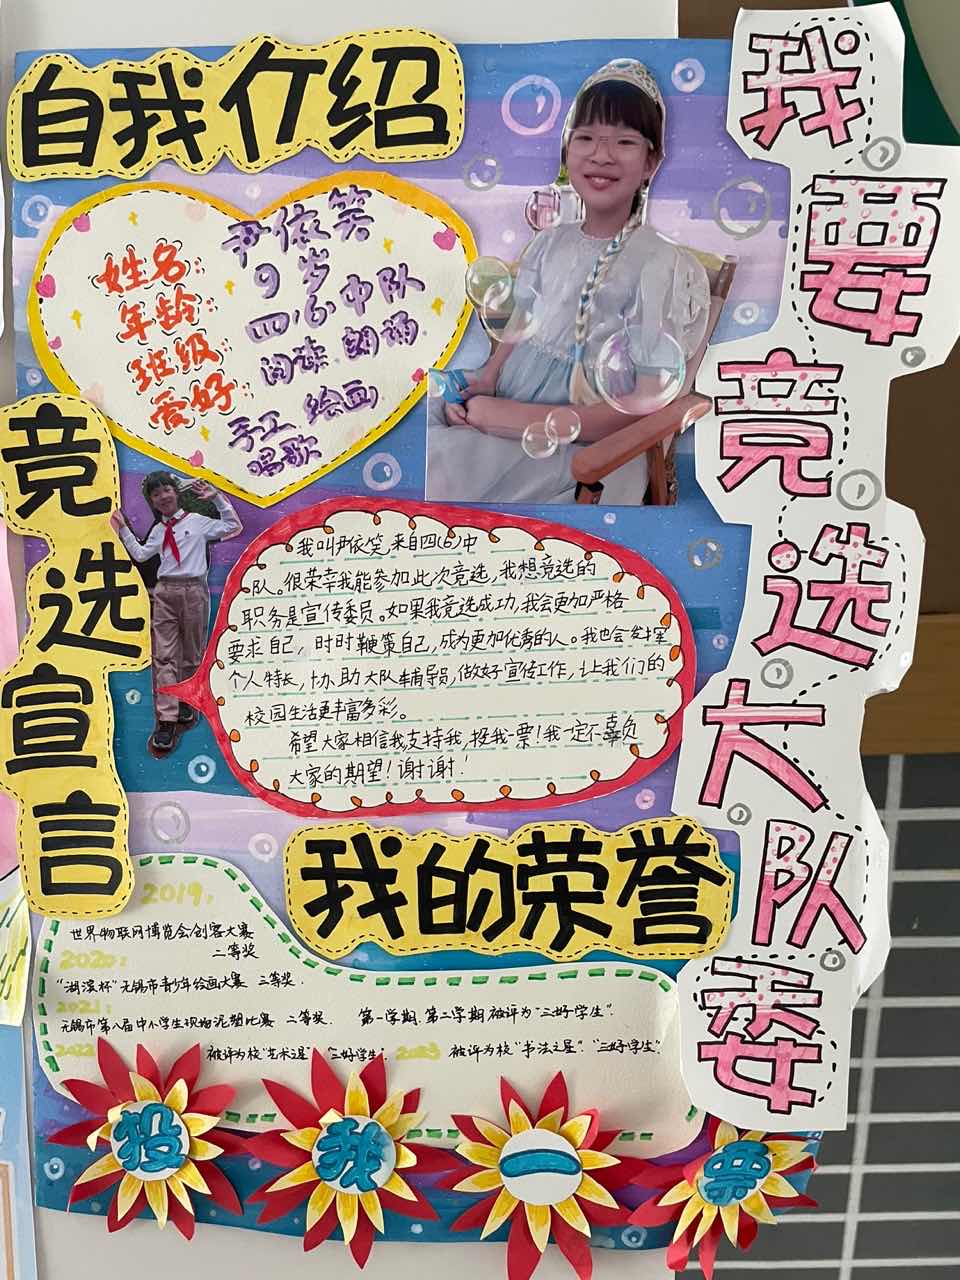 自我介绍
我要竞选大队委
姓名：尹依笑
年龄：9岁
班级：四·6中队
爱好：阅读 朗诵
手工 绘画
唱歌
竞选宣言
我叫尹依笑，来自四(6)中
队。很荣幸我能参加此次竞选，我想竞选的
职务是宣传委员。如果我竞选成功，我会更加严格
要求自己，时时鞭策自己，成为更加优秀的人。我也会发挥
个人特长，协助大队辅导员，做好宣传工作，让我们的
校园生活更丰富多彩。
希望大家相信我，支持我，投我一票！我一定不辜负
大家的期望！谢谢！
我的荣誉
2019：
世界物联网博览会创客大赛
二等奖
2020：
“湖滨杯”无锡市青少年绘画大赛 三等奖.
2021：
无锡市第八届中小学生现场泥塑比赛 二等奖. 第一学期、第二学期被评为“三好学生”.
2022 被评为校“艺术之星”“三好学生”. 2023 被评为校“书法之星”.“三好学生”.
投我一票